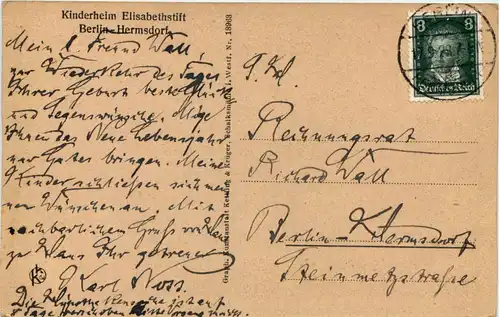 Kinderheim Elisabethstift
Berlin-Hermsdorf
Mein l. Freund Wall,
zur Wiederkehr des Tages
Ihrer Geburt beste Glück
und Segenswünsche. Möge
Ihnen das Neue Lebensjahr
nur Gutes bringen. Meine
Kinder schließen sich meinen
Wünschen an. Mit
nachbarlichem Gruß von Haus
zu Haus Ihr getreuer
Karl Noss.
Die
Tage verschoben
Graph. Kunstanstalt Kettling & Krüger, Schalksmühle i. Westf. Nr. 18903
8 8
Deutsches Reich
BERLIN
Rechnungsrat
Richard Wall
Berlin-Hermsdorf
Steinmetzstraße